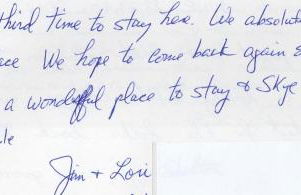 third time to stay here. We absolut
ace We hope to come back again &
a wonderful place to stay & Skye
le
Jim + Lori